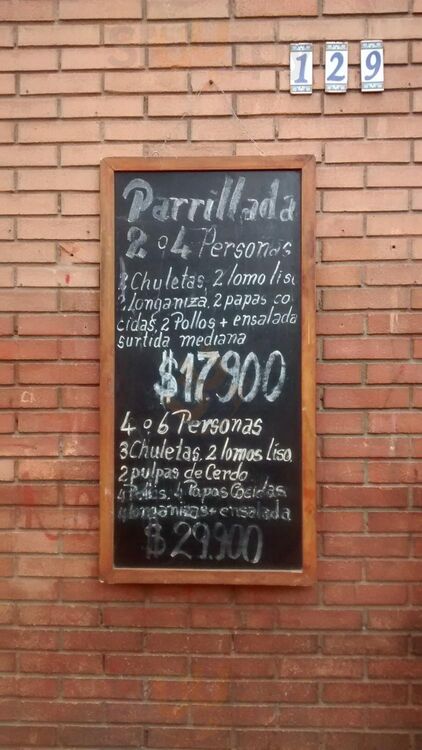 129
Parrillada
2 o 4 Personas
Chuletas, 2 lomo liso
longaniza, 2 papas co
cidas, 2 Pollos + ensalada
surtida mediana
$17.900
4 o 6 Personas
3 Chuletas, 2 lomos liso,
2 pulpas de Cerdo
4 Pollos, 4 Papas Cocidas
4 longanizas + ensalada
$29.900